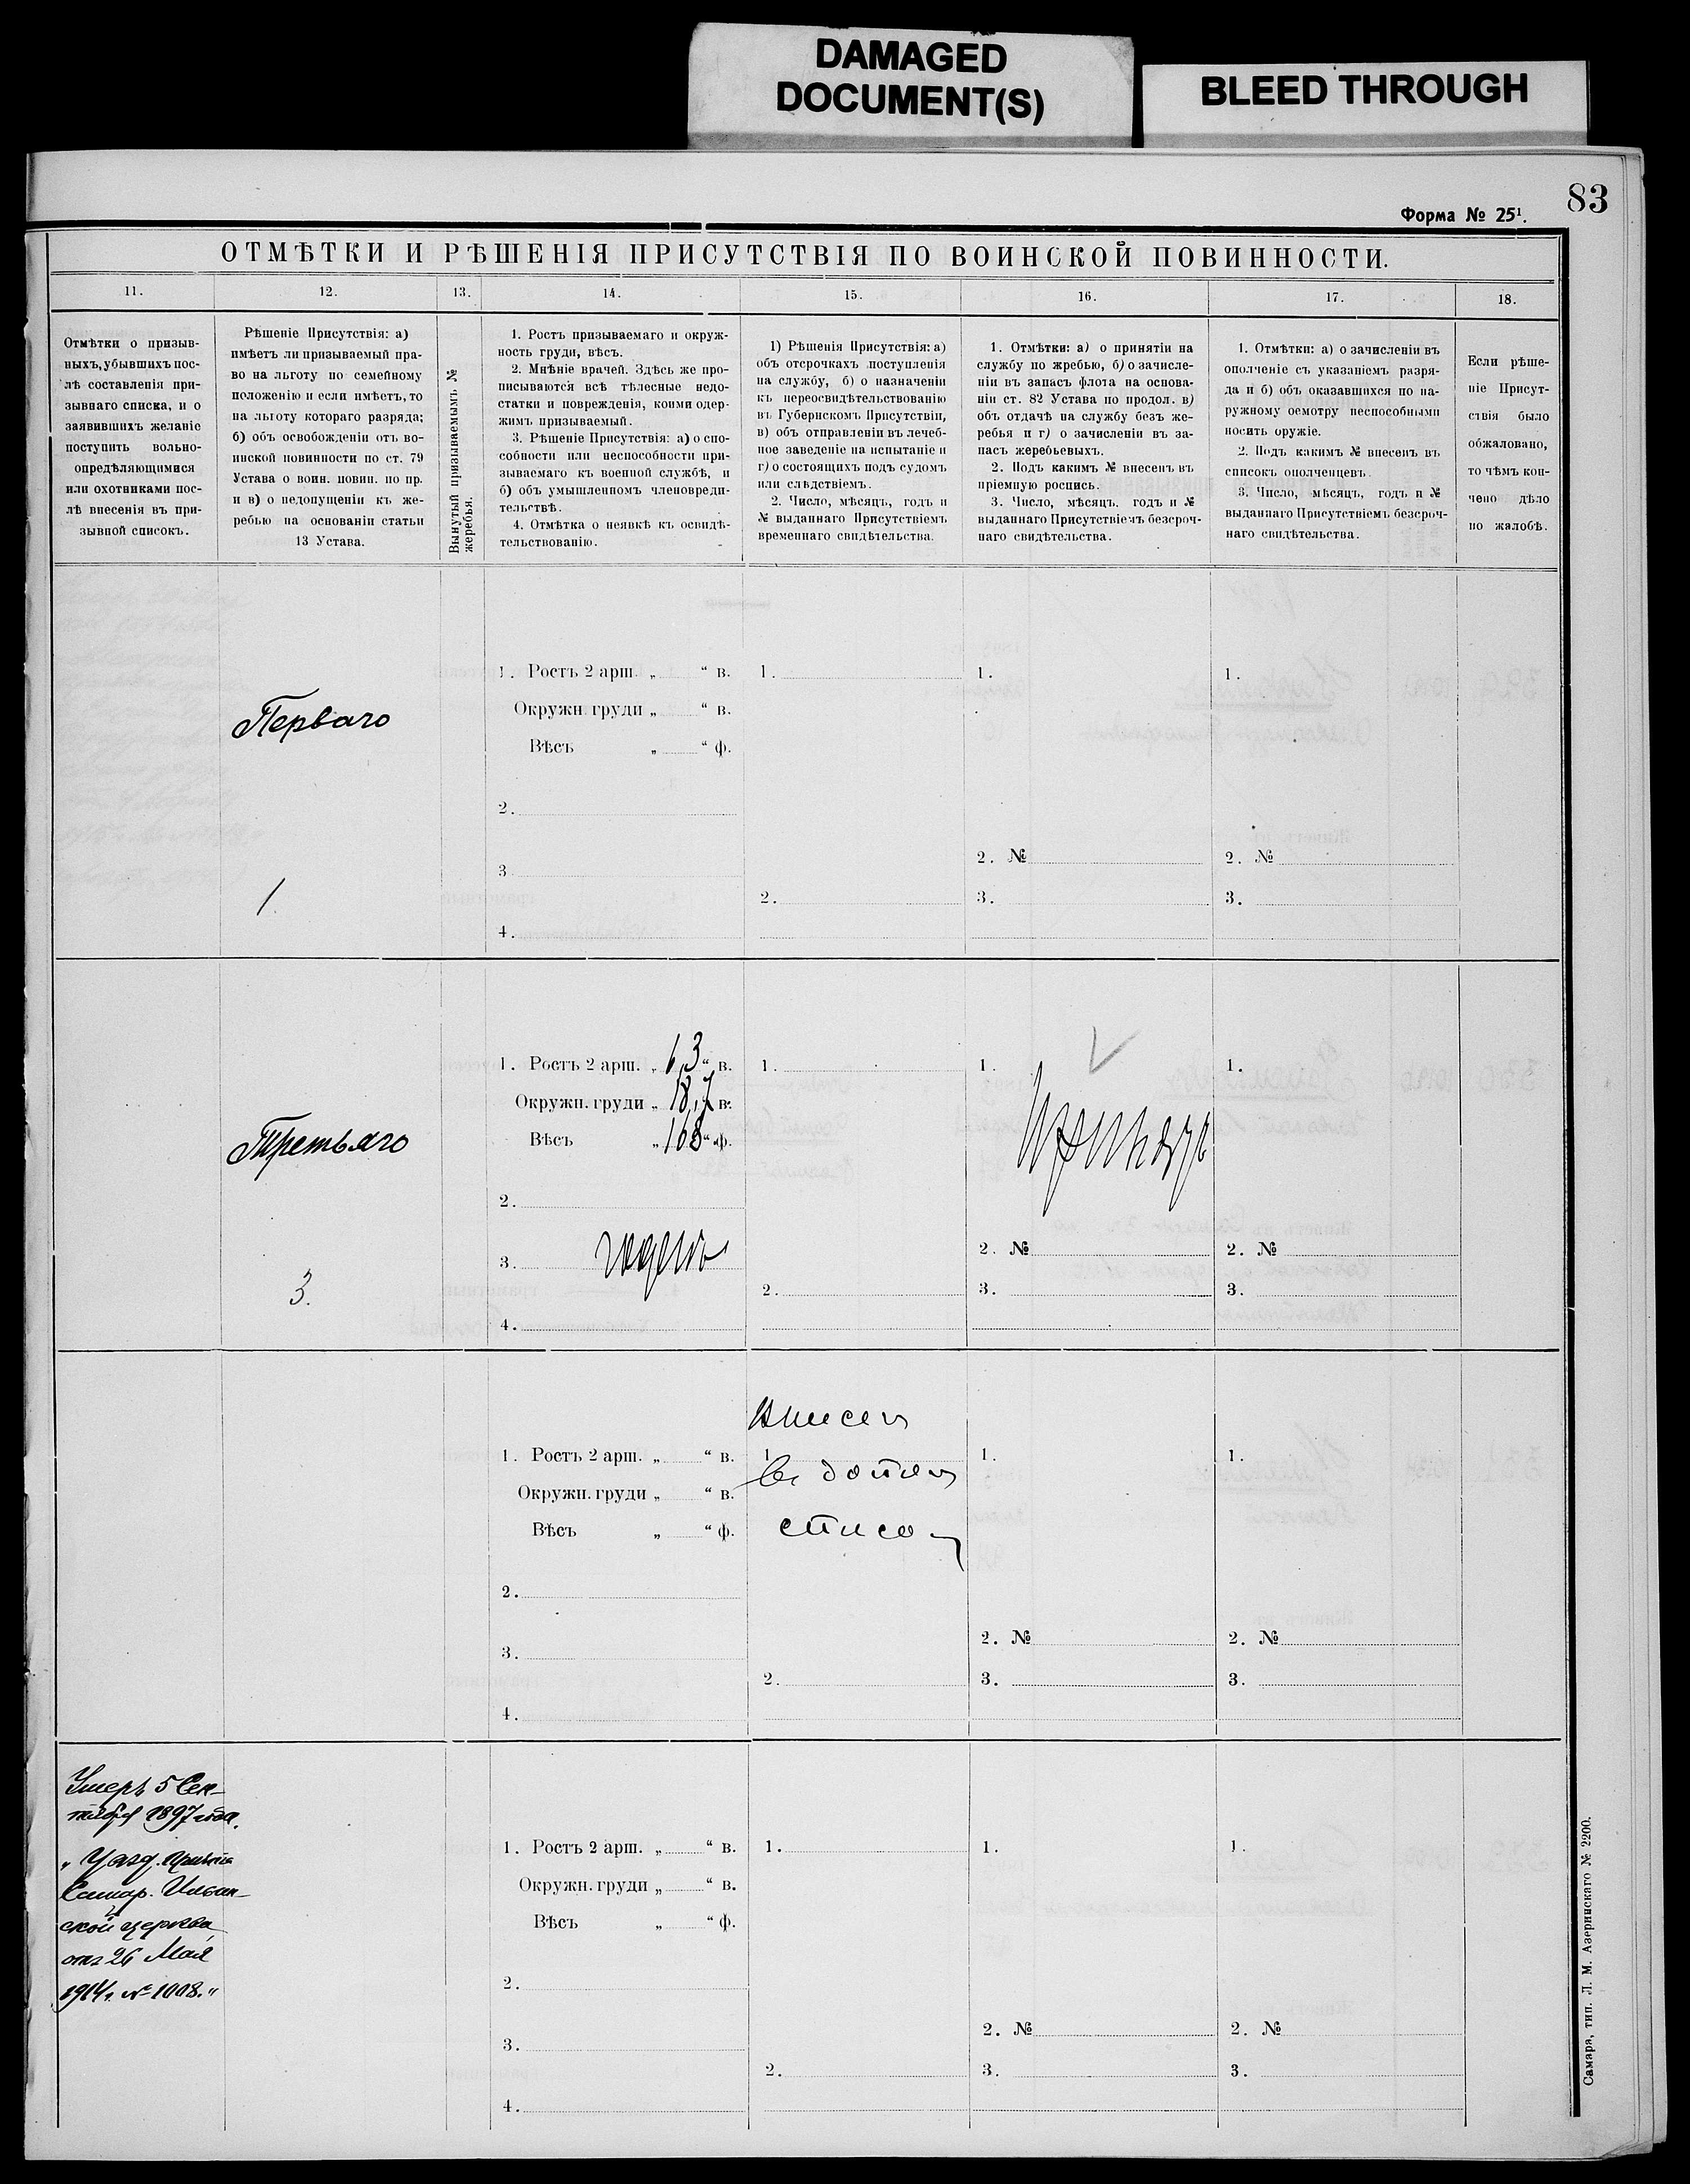 DAMAGED
DOCUMENT(S)
BLEED THROUGH
83
Форма № 25¹.
ОТМѢТКИ И РѢШЕНІЯ ПРИСУТСТВІЯ ПО ВОИНСКОЙ ПОВИННОСТИ.
11. 12. 13. 14. 15. 16. 17. 18.
Отмѣтки о призыв-
ныхъ, убывшихъ пос-
лѣ составленія при-
зывнаго списка, и о
заявившихъ желаніе
поступить вольно-
опредѣляющимися
или охотниками пос-
лѣ внесенія въ при-
зывной списокъ.
Рѣшеніе Присутствія: а)
имѣетъ ли призываемый пра-
во на льготу по семейному
положенію и если имѣетъ, то
на льготу котораго разряда;
б) объ освобожденіи отъ во-
инской повинности по ст. 79
Устава о воин. повин. по пр.
и в) о недопущеніи къ же-
ребью на основаніи статьи
13 Устава.
Вынутый призываемымъ №
жеребья.
1. Ростъ призываемаго и окруж-
ность груди, вѣсъ.
2. Мнѣніе врачей. Здѣсь же про-
писываются всѣ тѣлесные недо-
статки и поврежденія, коими одер-
жимъ призываемый.
3. Рѣшеніе Присутствія: а) о спо-
собности или неспособности при-
зываемаго къ военной службѣ, и
б) объ умышленномъ членовреди-
тельствѣ.
4. Отмѣтка о неявкѣ къ освидѣ-
тельствованію.
1) Рѣшенія Присутствія: а)
объ отсрочкахъ поступленія
на службу, б) о назначеніи
къ переосвидѣтельствованію
въ Губернскомъ Присутствіи,
в) объ отправленіи въ лечеб-
ное заведеніе на испытаніе и
г) о состоящихъ подъ судомъ
или слѣдствіемъ.
2. Число, мѣсяцъ, годъ и
№ выданнаго Присутствіемъ
временнаго свидѣтельства.
1. Отмѣтки: а) о принятіи на
службу по жребью, б) о зачисле-
ніи въ запасъ флота на основа-
ніи ст. 82 Устава по продол. в)
объ отдачѣ на службу безъ же-
ребья и г) о зачисленіи въ за-
пасъ жеребьевыхъ.
2. Подъ какимъ № внесенъ въ
пріемную роспись.
3. Число, мѣсяцъ, годъ и №
выданнаго Присутствіемъ безсроч-
наго свидѣтельства.
1. Отмѣтки: а) о зачисленіи въ
ополченіе съ указаніемъ разря-
да и б) объ оказавшихся по на-
ружному осмотру неспособными
носить оружіе.
2. Подъ какимъ № внесенъ въ
списокъ ополченцевъ.
3. Число, мѣсяцъ, годъ и №
выданнаго Присутствіемъ безсроч-
наго свидѣтельства.
Если рѣше-
ніе Присут-
ствія было
обжаловано,
то чѣмъ кон-
чено дѣло
по жалобѣ.
Перваго
1.
1. Ростъ 2 арш. „ “ в.
Окружн. груди „ “ в.
Вѣсъ „ “ ф.
2.
3
4.
1.
2.
1.
2. №
3.
1.
2. №
3.
Третьяго
3.
1. Ростъ 2 арш. „ 6,3 “ в.
Окружн. груди „ 18,7 в.
Вѣсъ „ 168 “ ф.
2.
3. годенъ
4.
1.
2.
1.
2. №
3.
1.
2. №
3.
1. Ростъ 2 арш. „ “ в.
Окружн. груди „ “ в.
Вѣсъ „ “ ф.
2.
3.
4.
Внесен
1
в допол
списо
2.
1.
2. №
3.
1.
2. №
3.
Умеръ 5 Сен-
тября 1897 года.
Самар.
ской церкви
отъ 26 Мая
1914 г. № 1008."
1. Ростъ 2 арш. „ “ в.
Окружн. груди „ “ в.
Вѣсъ „ “ ф.
2.
3.
4.
1.
2.
1.
2. №
3.
1.
2. №
3.
Самара, тип. Л. М. Азеринскаго № 2200.